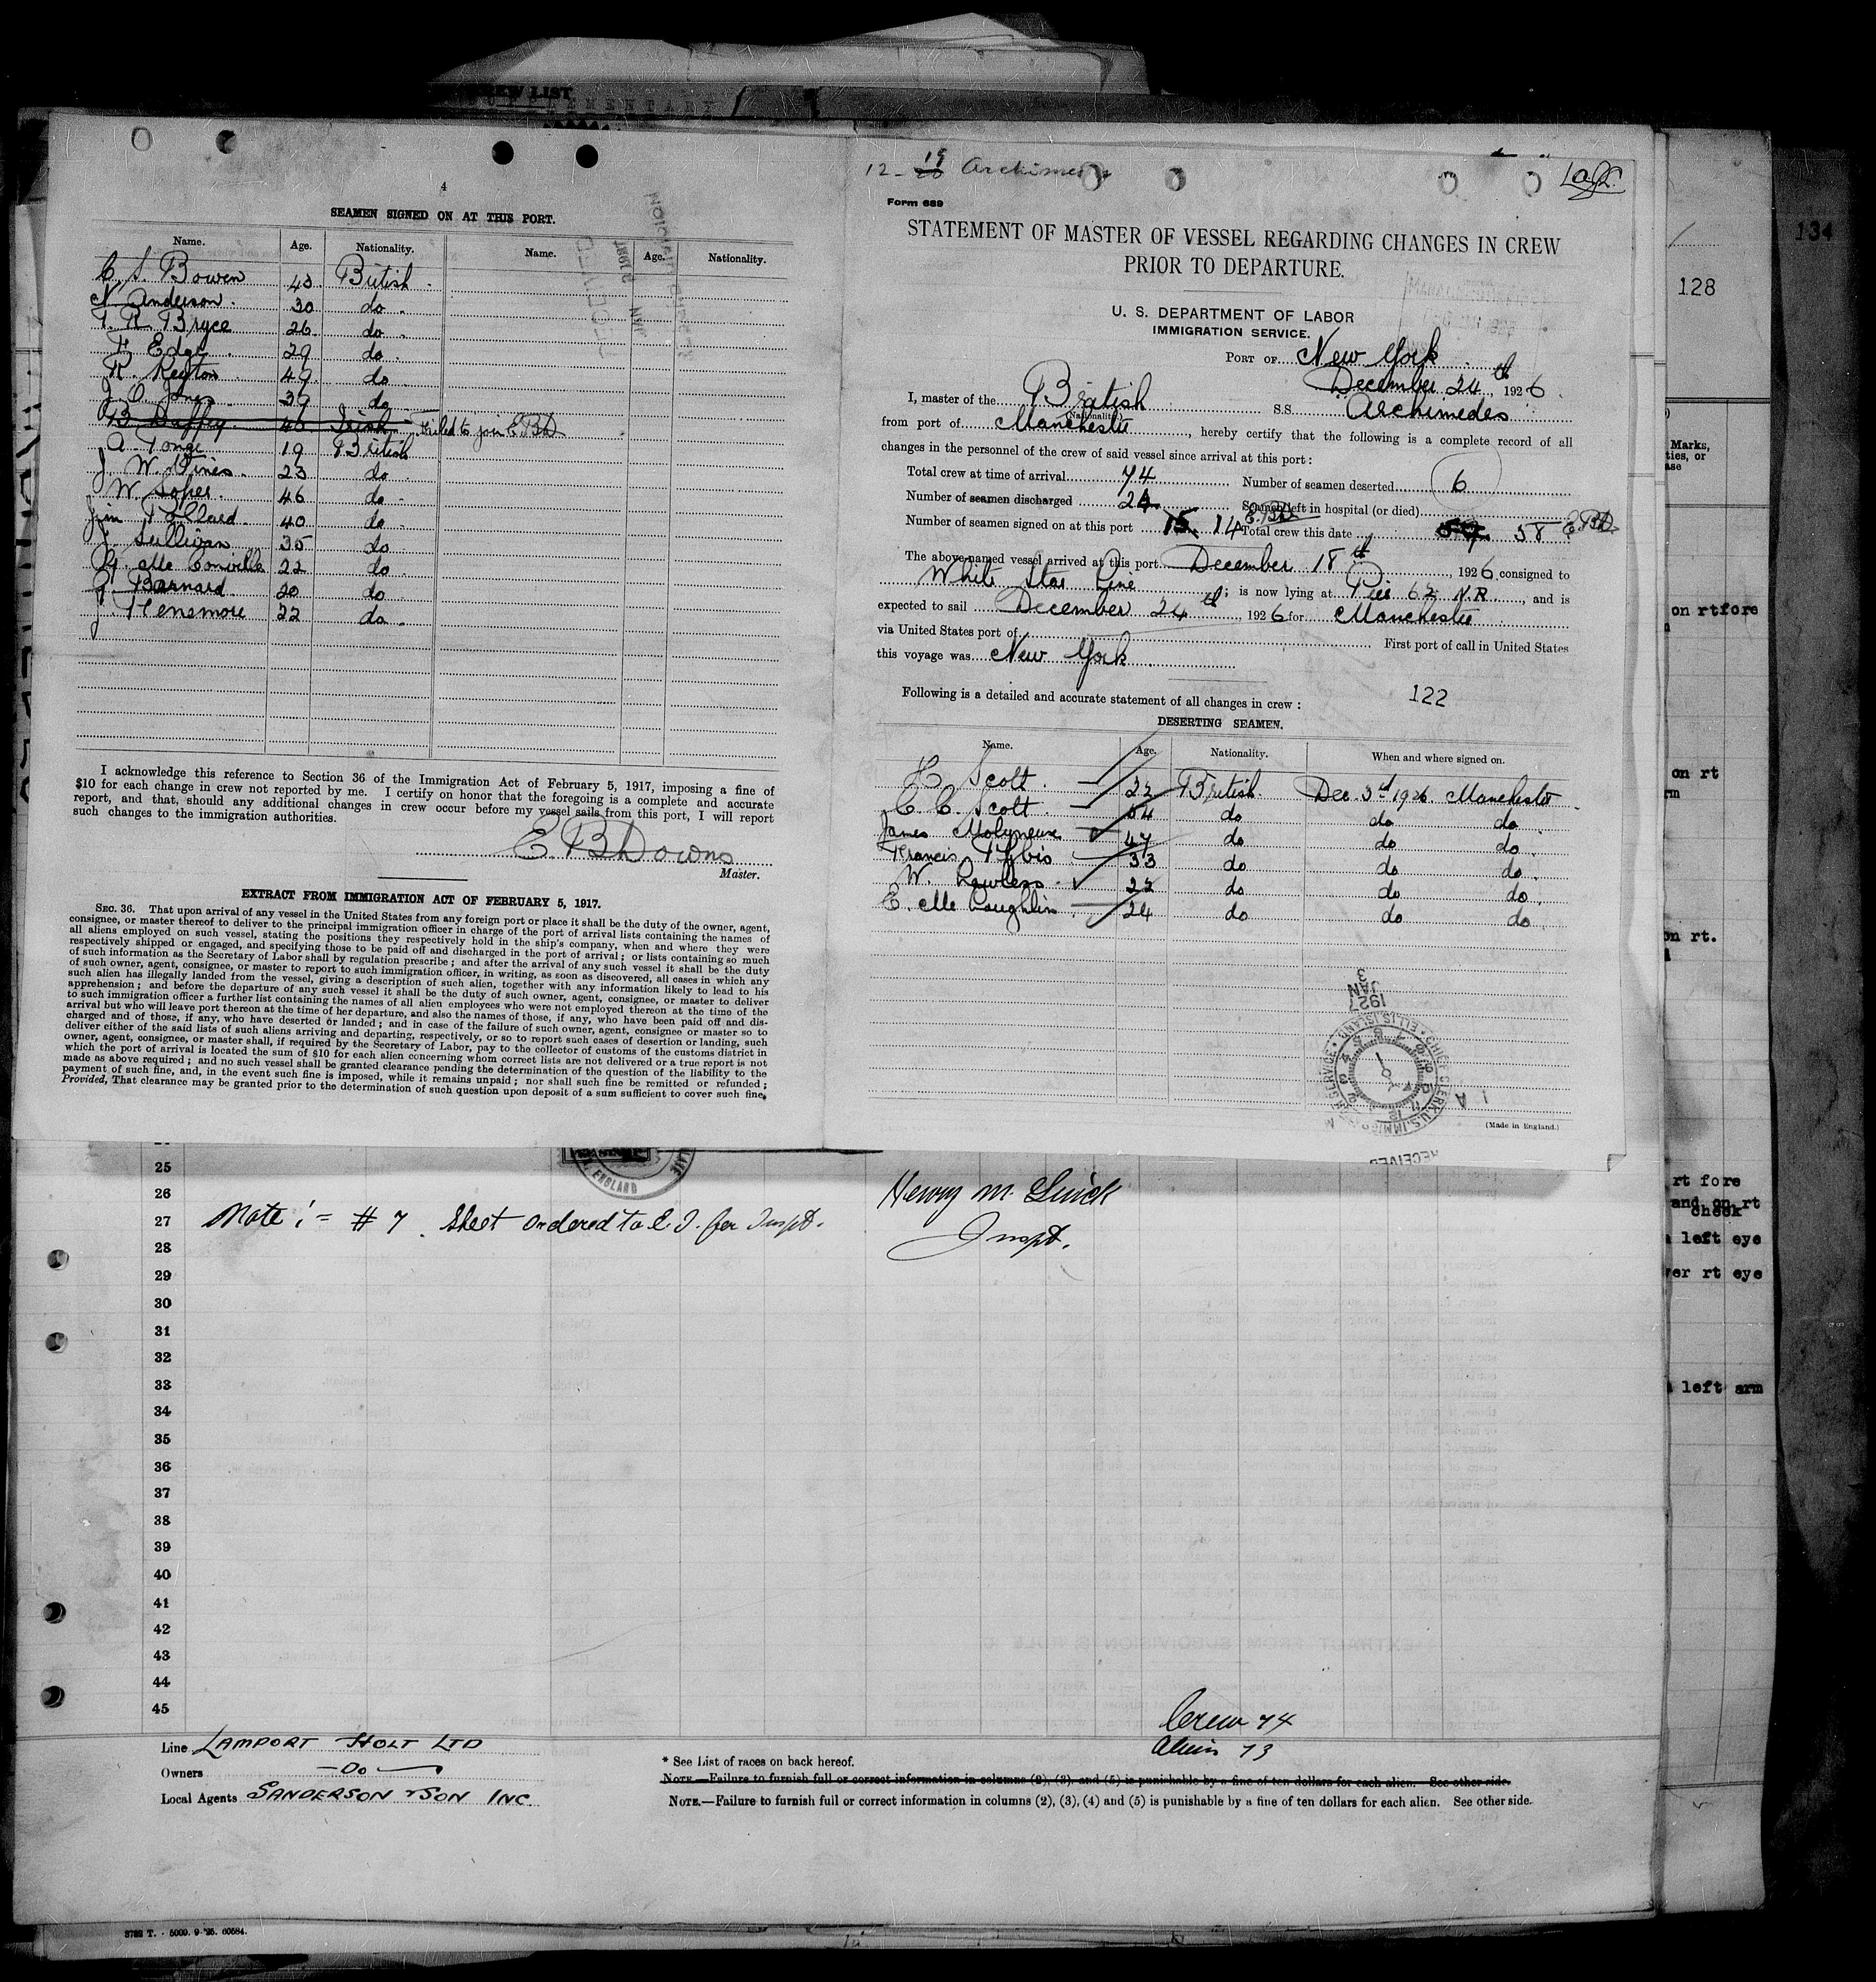 CREW LIST
SUPPLEMENTARY
4
SEAMEN SIGNED ON AT THIS PORT.
Name. Age. Nationality. Name. Age. Nationality.
C. S. Bowen 43 British.
N. Anderson. 30 do.
T. R. Bryce 26 do.
F. Edge. 29 do.
R. Keyton 49. do.
J. O. Jones 39 do
B. Duffey. 46 Irish failed to join EBD
A. Tonge 19 British
J. W. Hines. 23 do.
W. Soper. 46 do.
Jim Pollard. 40 do.
J. Sullivan 35 do
G. McConville 22 do.
G. Barnard. 20 do.
J. Hensmore 22 do.
I acknowledge this reference to Section 36 of the Immigration Act of February 5, 1917, imposing a fine of
$10 for each change in crew not reported by me. I certify on honor that the foregoing is a complete and accurate
report, and that, should any additional changes in crew occur before my vessel sails from this port, I will report
such changes to the immigration authorities.
E. B. Downs
Master.
EXTRACT FROM IMMIGRATION ACT OF FEBRUARY 5, 1917.
SEC. 36. That upon arrival of any vessel in the United States from any foreign port or place it shall be the duty of the owner, agent,
consignee, or master thereof to deliver to the principal immigration officer in charge of the port of arrival lists containing the names of
all aliens employed on such vessel, stating the positions they respectively hold in the ship's company, when and where they were
respectively shipped or engaged, and specifying those to be paid off and discharged in the port of arrival; or lists containing so much
of such information as the Secretary of Labor shall by regulation prescribe; and after the arrival of any such vessel it shall be the duty
of such owner, agent, consignee, or master to report to such immigration officer, in writing, as soon as discovered, all cases in which any
such alien has illegally landed from the vessel, giving a description of such alien, together with any information likely to lead to his
apprehension; and before the departure of any such vessel it shall be the duty of such owner, agent, consignee, or master to deliver
to such immigration officer a further list containing the names of all alien employees who were not employed thereon at the time of the
arrival but who will leave port thereon at the time of her departure, and also the names of those, if any, who have been paid off and dis-
charged and of those, if any, who have deserted or landed; and in case of the failure of such owner, agent, consignee or master so to
deliver either of the said lists of such aliens arriving and departing, respectively, or so to report such cases of desertion or landing, such
owner, agent, consignee, or master shall, if required by the Secretary of Labor, pay to the collector of customs of the customs district in
which the port of arrival is located the sum of $10 for each alien concerning whom correct lists are not delivered or a true report is not
made as above required; and no such vessel shall be granted clearance pending the determination of the question of the liability to the
payment of such fine, and, in the event such fine is imposed, while it remains unpaid; nor shall such fine be remitted or refunded;
Provided, That clearance may be granted prior to the determination of such question upon deposit of a sum sufficient to cover such fine.
12- 19 20 Archimedes
Form 689
STATEMENT OF MASTER OF VESSEL REGARDING CHANGES IN CREW
PRIOR TO DEPARTURE.
U. S. DEPARTMENT OF LABOR
IMMIGRATION SERVICE.
PORT OF New York
December 24th, 1926.
I, master of the British S.S. Archimedes
(Nationality)
from port of Manchester, hereby certify that the following is a complete record of all
changes in the personnel of the crew of said vessel since arrival at this port:
Total crew at time of arrival 74 Number of seamen deserted 6
Number of seamen discharged 24 Seamen left in hospital (or died)
Number of seamen signed on at this port 15 14 EBD Total crew this date 59 58 EBD
The above-named vessel arrived at this port December 18th, 1926 consigned to
White Star Line; is now lying at Pier 62 N.R., and is
expected to sail December 24th, 1926 for Manchester
via United States port of First port of call in United States
this voyage was New York
Following is a detailed and accurate statement of all changes in crew: 122
DESERTING SEAMEN.
Name. Age. Nationality. When and where signed on.
H. Scott. 22 British. Dec. 3rd 1926. Manchester.
C. C. Scott. 54 do do do.
James Molyneux 47 do do do.
Francis Tybis 33 do do do.
W. Lawless. 22 do do do.
C. McLoughlin. 24 do do do.
JAN 3 1927
CHIEF CLERK U.S. IMMIGRATION SERVICE ELLIS ISLAND
RECEIVED
(Made in England.)
25
26
27 Note := #7. Sheet ordered to E. I. for Inspt.
Henry M. Quick
Inspt.
28
29
30
31
32
33
34
35
36
37
38
39
40
41
42
43
44
45
Crew 74
Alien 73
Line LAMPORT HOLT LTD
Owners -Do-
Local Agents SANDERSON & SON INC
* See List of races on back hereof.
NOTE.—Failure to furnish full or correct information in columns (2), (3), and (5) is punishable by a fine of ten dollars for each alien. See other side.
NOTE.—Failure to furnish full or correct information in columns (2), (3), (4) and (5) is punishable by a fine of ten dollars for each alien. See other side.
3782 T. - 5000. 9-'25. 60584.
134
128
Marks,
on rt fore
on rt
on rt.
rt fore
and on rt
check
left eye
rt eye
left arm